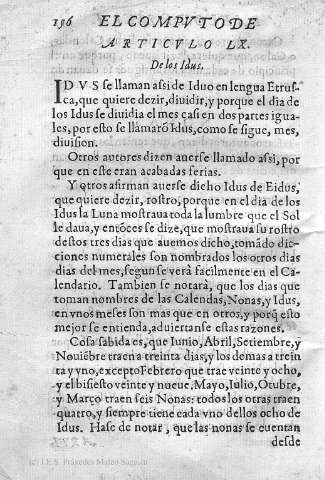 196 EL COMPVTO DE
ARTICVLO LX.
De los Idus.
IDVS se llaman assi de Iduo en lengua Etrus-
ca, que quiere dezir, diuidir, y porque el dia de
los Idus se diuidia el mes casi en dos partes igua-
les, por esto se llamarõ Idus, como se sigue, mes,
diuision.
Otros autores dizen auerse llamado assi, por
que en este eran acabadas ferias.
Y otros afirman auerse dicho Idus de Eidus,
que quiere dezir, rostro, porque en el dia de los
Idus la Luna mostraua toda la lumbre que el Sol
le daua, y entõces se dize, que mostraua su rostro
destos tres dias que auemos dicho, tomãdo dic-
ciones numerales son nombrados los otros dias
dias del mes, segun se verà facilmente en el Ca-
lendario. Tambien se notarà, que los dias que
toman nombres de las Calendas, Nonas, y Idus,
en vnos meses son mas que en otros, y porq̃ esto
mejor se entienda, aduiertanse estas razones.
Cosa sabida es, que Iunio, Abril, Setiembre, y
Nouiẽbre traen a treinta dias, y los demas a trein
ta y vno, excepto Febrero que trae veinte y ocho,
y el bisiesto veinte y nueue. Mayo, Iulio, Otubre,
y Março traen seis Nonas: todos los otras traen
quatro, y siempre tiene cada vno dellos ocho de
Idus. Hase de notar, que las nonas se cuentan
desde
(c) I.E.S. Práxedes Mateo Sagasta